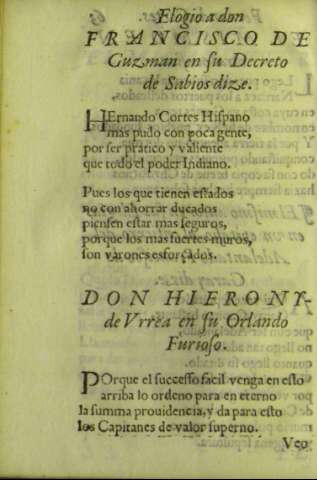 Elogio a don
FRANCISCO DE
Guzman en su Decreto
de Sabios dize.
HErnando Cortes Hispano
mas pudo con poca gente,
por ser pratico y valiente
que todo el poder Indiano.
Pues los que tienen estados
no con ahorrar ducados
piensen estar mas seguros,
porque los mas fuertes muros,
son varones esforçados.
DON HIERONY-
de Vrrea en su Orlando
Furioso.
POrque el sucesso facil venga en esto
arriba lo ordeno para en eterno
la summa prouidencia, y da para esto
los Capitanes de valor superno.
Veo